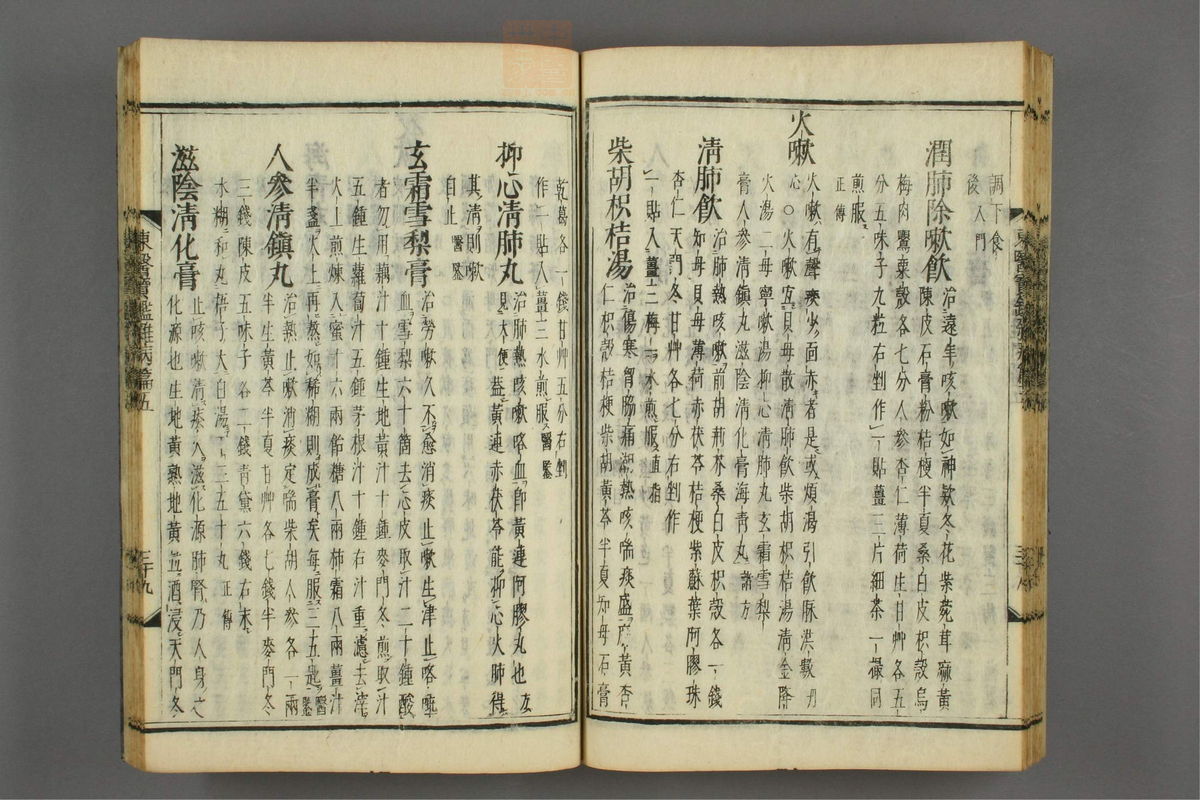 調下食
後入門
潤肺除嗽飮 治遠年咳嗽如神款冬花紫菀茸麻黃
陳皮石膏粉桔梗半夏桑白皮枳殼烏
梅肉罌粟殼各七分人參杏仁薄荷生甘艸各五
分五味子九粒右剉作一貼薑三片細茶一撮同
煎服
正傳
火嗽
火嗽有聲痰少面赤者是或煩渴引飮脉洪數丹
心○火嗽宜貝母散淸肺飮柴胡枳桔湯淸金降
火湯二母寧嗽湯抑心淸肺丸玄霜雪梨
膏人參淸鎭丸滋陰淸化膏海靑丸諸方
淸肺飮 治肺熱咳嗽前胡荊芥桑白皮枳殼各一錢
知母貝母薄荷赤茯苓桔梗紫蘇葉阿膠珠
杏仁天門冬甘艸各七分右剉作
一貼入薑三梅一水煎服直指
柴胡枳桔湯 治傷寒胷脇痛潮熱咳喘痰盛麻黃杏
仁枳殼桔梗柴胡黃芩半夏知母石膏
東醫寶鑑雜病篇五
乾葛各一錢甘艸五分右剉
作一貼入薑三水煎服醫鑒
抑心淸肺丸 治肺熱咳嗽咯血卽黃連阿膠丸也方
見大便盖黃連赤茯苓能抑心火肺得
其淸則嗽
自止 醫鑒
玄霜雪梨膏 治勞嗽久不愈消痰止嗽生津止咯唾
血雪梨六十箇去心皮取汁二十鍾酸
者勿用藕汁十鍾生地黃汁十鍾麥門冬煎取汁
五鍾生蘿葍汁五鍾茅根汁十鍾右汁重濾去滓
火上煎煉入蜜十六兩飴糖八兩柿霜八兩薑汁
半盞火上再熬如稀糊則成膏矣每服三五匙醫鑒
人參淸鎭丸 治熱止嗽消痰定喘柴胡人參各一兩
半生黃芩半夏甘艸各七錢半麥門冬
三錢陳皮五味子各二錢靑黛六錢右末
水糊和丸梧子大白湯下三五十丸正傳
滋陰淸化膏 止咳嗽淸痰火滋化源肺腎乃人身之
化源也生地黃熟地黃並酒浸天門冬
東醫寶鑑雜病篇五
三十九